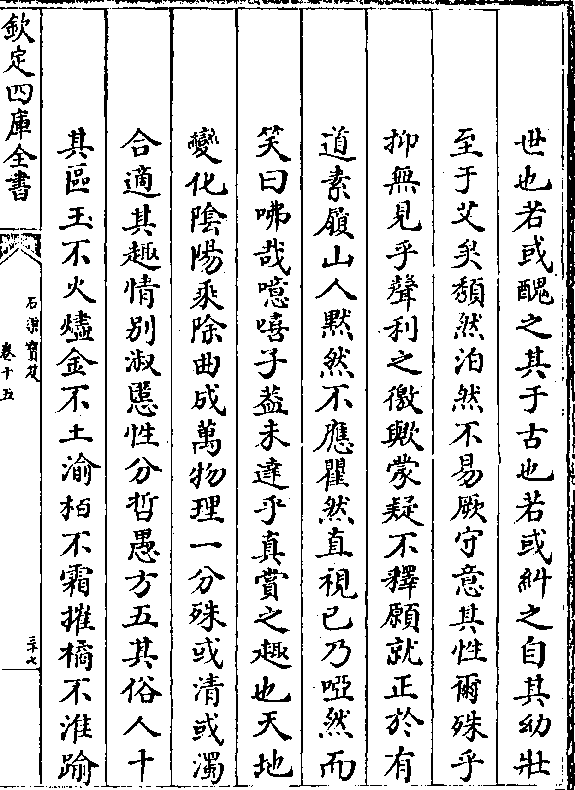 世也若或醜之其于古也若或糾之自其幼壯
至于艾矣頽然泊然不易厥守意其性爾殊乎
抑無見乎聲利之徼歟蒙疑不釋願就正於有
道素嶺山人黙然不應瞿然直視已乃啞然而
笑曰咈哉噫嘻子葢未達乎真賞之趣也天地
變化陰陽乘除曲成萬物理一分殊或清或濁
合適其趣情别淑慝性分哲愚方五其俗人十
其區玉不火燼金不土渝栢不霜摧橘不淮踰
欽定四庫全書
石渠寶笈
卷十五
三十七